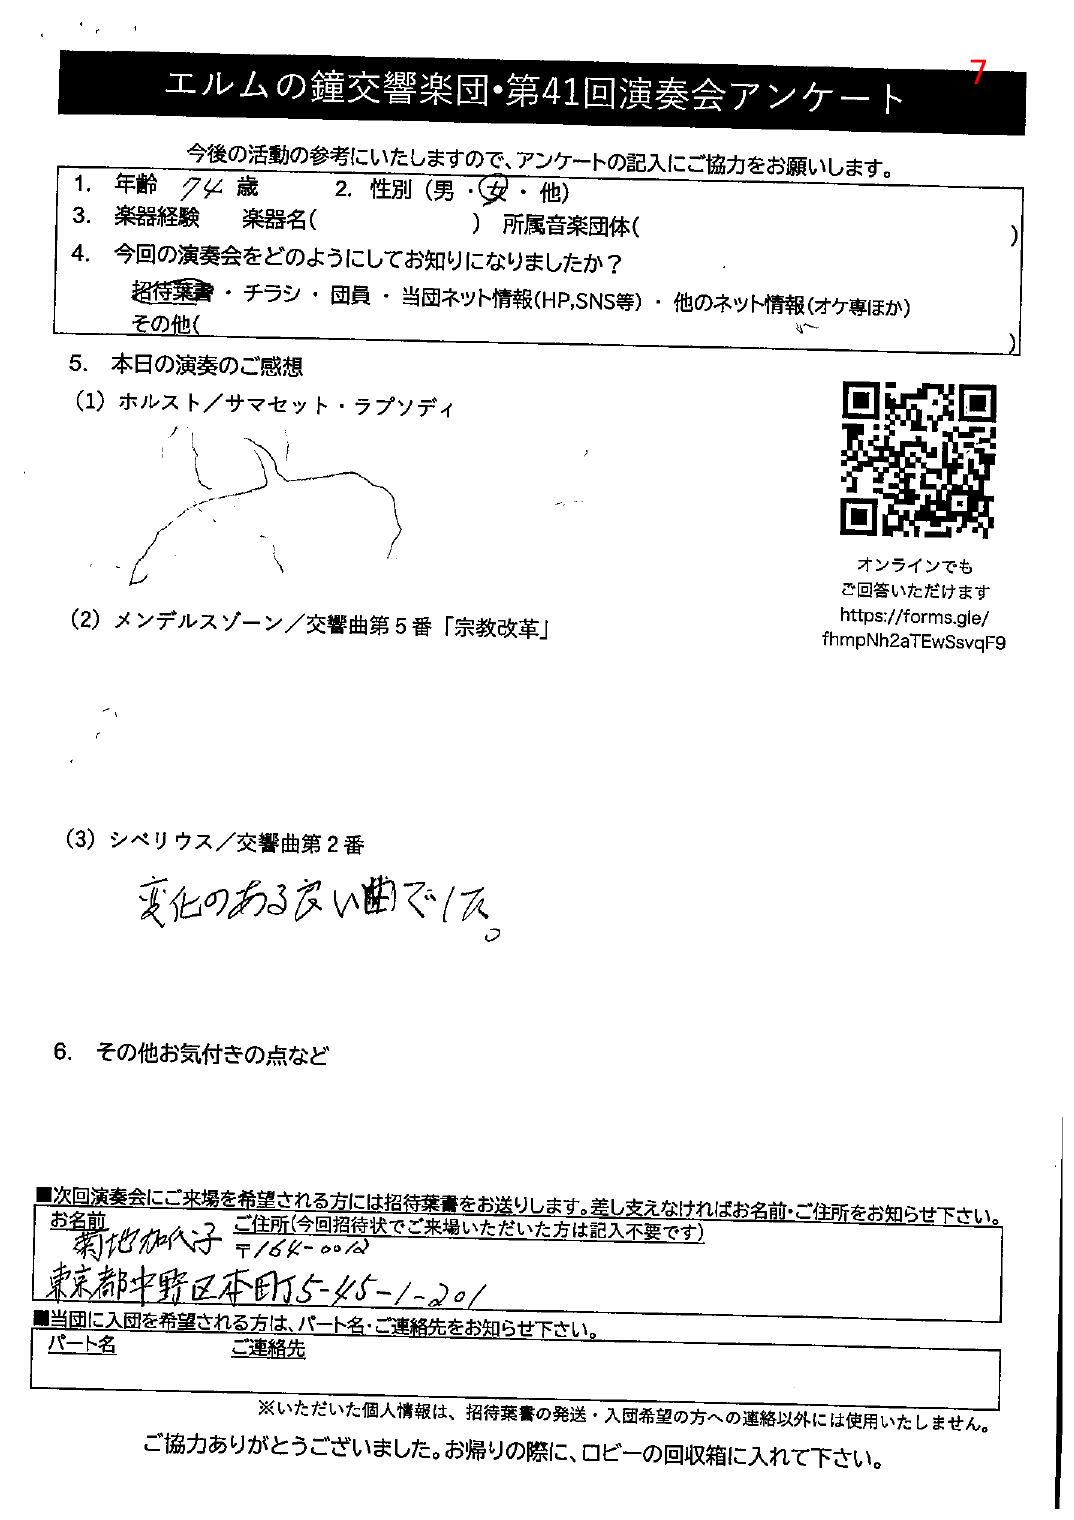 7
エルムの鐘交響楽団・第41回演奏会アンケート
今後の活動の参考にいたしますので、アンケートの記入にご協力をお願いします。
1. 年齢 74 歳 2. 性別（男・女・他）
3. 楽器経験 楽器名( ) 所属音楽団体( )
4. 今回の演奏会をどのようにしてお知りになりましたか？
招待葉書・チラシ・団員・当団ネット情報(HP,SNS等)・他のネット情報(オケ専ほか)
その他( )
5. 本日の演奏のご感想
（1）ホルスト／サマセット・ラプソディ
オンラインでも
ご回答いただけます
https://forms.gle/
fhmpNh2aTEwSsvqF9
（2）メンデルスゾーン／交響曲第5番「宗教改革」
（3）シベリウス／交響曲第2番
変化のある良い曲でした。
6. その他お気付きの点など
■次回演奏会にご来場を希望される方には招待葉書をお送りします。差し支えなければお名前・ご住所をお知らせ下さい。
お名前 ご住所(今回招待状でご来場いただいた方は記入不要です)
菊地加代子 〒164-0012
東京都中野区本町5-45-1-201
■当団に入団を希望される方は、パート名・ご連絡先をお知らせ下さい。
パート名 ご連絡先
※いただいた個人情報は、招待葉書の発送・入団希望の方への連絡以外には使用いたしません。
ご協力ありがとうございました。お帰りの際に、ロビーの回収箱に入れて下さい。